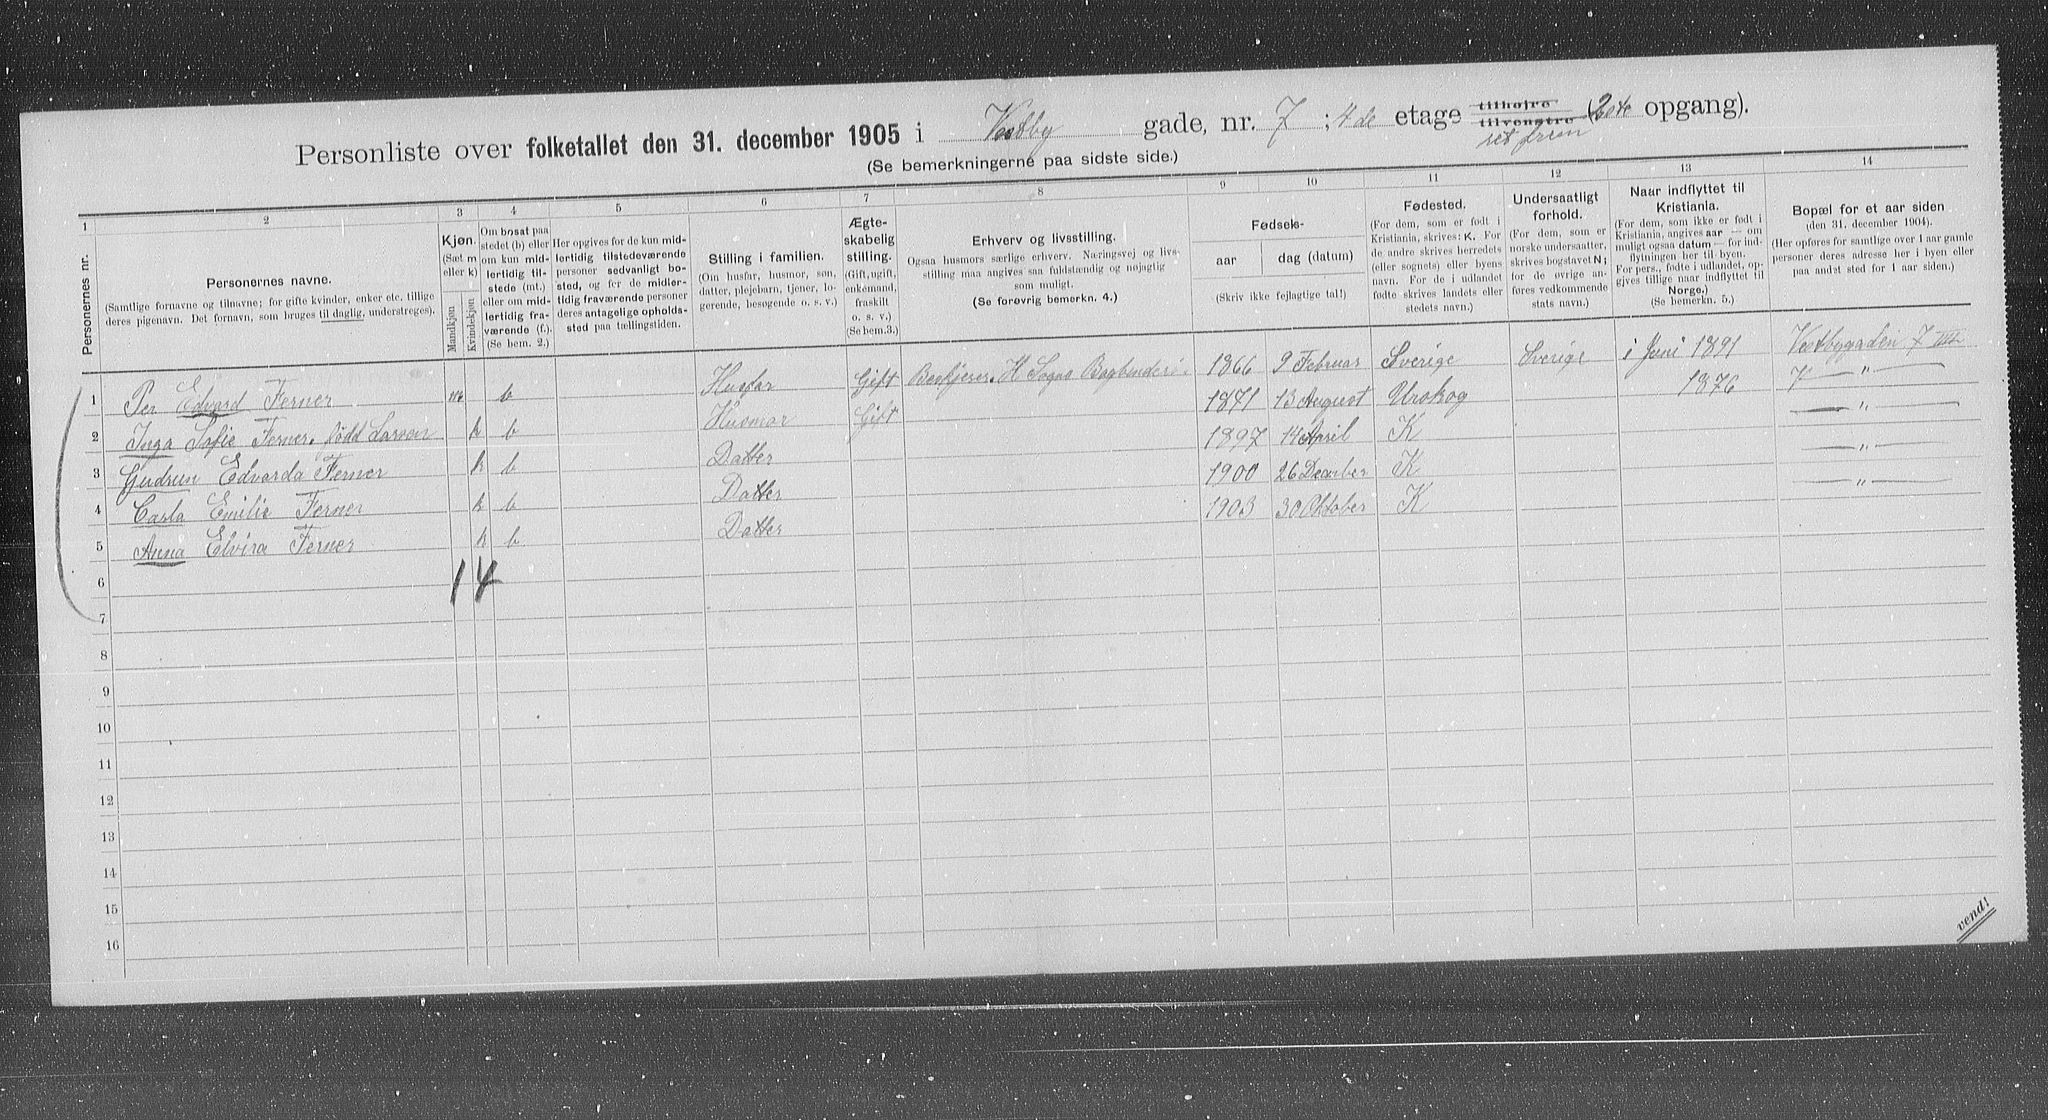 Personliste over folketallet den 31. december 1905 i Vestby gade, nr. 7 ; 4de etage tilhøjre tilvenstre (2de opgang).
ret frem
(Se bemerkningerne paa sidste side.)
1 2 3 4 5 6 7 8 9 10 11 12 13 14
Personernes nr.
Personernes navne.
(Samtlige fornavne og tilnavne; for gifte kvinder, enker etc. tillige
deres pigenavn. Det fornavn, som bruges til daglig, understreges).
Kjøn.
(Sæt m
eller k)
Mandkjøn
Kvindekjøn
Om bosat paa
stedet (b) eller
om kun mid-
lertidig til-
stede (mt.)
eller om mid-
lertidig fra-
værende (f.).
(Se bem. 2.)
Her opgives for de kun mid-
lertidig tilstedeværende
personer sedvanligt bo-
sted, og for de midler-
tidig fraværende personer
deres antagelige opholds-
sted paa tællingstiden.
Stilling i familien.
(Om husfar, husmor, søn,
datter, plejebarn, tjener, lo-
gerende, besøgende o. s. v.)
Ægte-
skabelig
stilling.
(Gift, ugift,
enkemand,
fraskilt
o. s. v.)
(Se bem. 3.)
Erhverv og livsstilling.
Ogsaa husmors særlige erhverv. Næringsvej og livs-
stilling maa angives saa fuldstændig og nøjagtig
som muligt.
(Se forøvrig bemerkn. 4.)
Fødsels-
aar
dag (datum)
(Skriv ikke fejlagtige tal!)
Fødested.
(For dem, som er født i
Kristiania, skrives: K. For
de andre skrives herredets
(eller sognets) eller byens
navn. For de i udlandet
fødte skrives landets eller
stedets navn.)
Undersaatligt
forhold.
(For dem, som er
norske undersaatter,
skrives bogstavet N;
for de øvrige an-
føres vedkommende
stats navn.)
Naar indflyttet til
Kristiania.
(For dem, som ikke er født i
Kristiania, angives aar — om
muligt ogsaa datum — for ind-
flytningen her til byen.
For pers., fødte i udlandet, op-
gives tillige naar indflyttet til
Norge.)
(Se bemerkn. 5.)
Bopæl for et aar siden
(den 31. december 1904).
(Her opføres for samtlige over 1 aar gamle
personer deres adresse her i byen eller
paa andet sted for 1 aar siden.)
1 Per Edvard Ferner m b Husfar Gift Beskjerer. H Sogns Bogbinderi. 1866 9 Februar Sverige Sverige i Juni 1891 Vestbygaden 7
2 Inga Sofie Ferner. född Larsen k b Husmor Gift 1871 13 August Urskog 1876 — " —
3 Gudrun Edvarda Ferner k b Datter 1897 14 April K — " —
4 Carla Emilie Ferner k b Datter 1900 26 December K — " —
5 Anna Elvira Ferner k b Datter 1903 30 Oktober K — " —
6 1 4
7
8
9
10
11
12
13
14
15
16
vend!